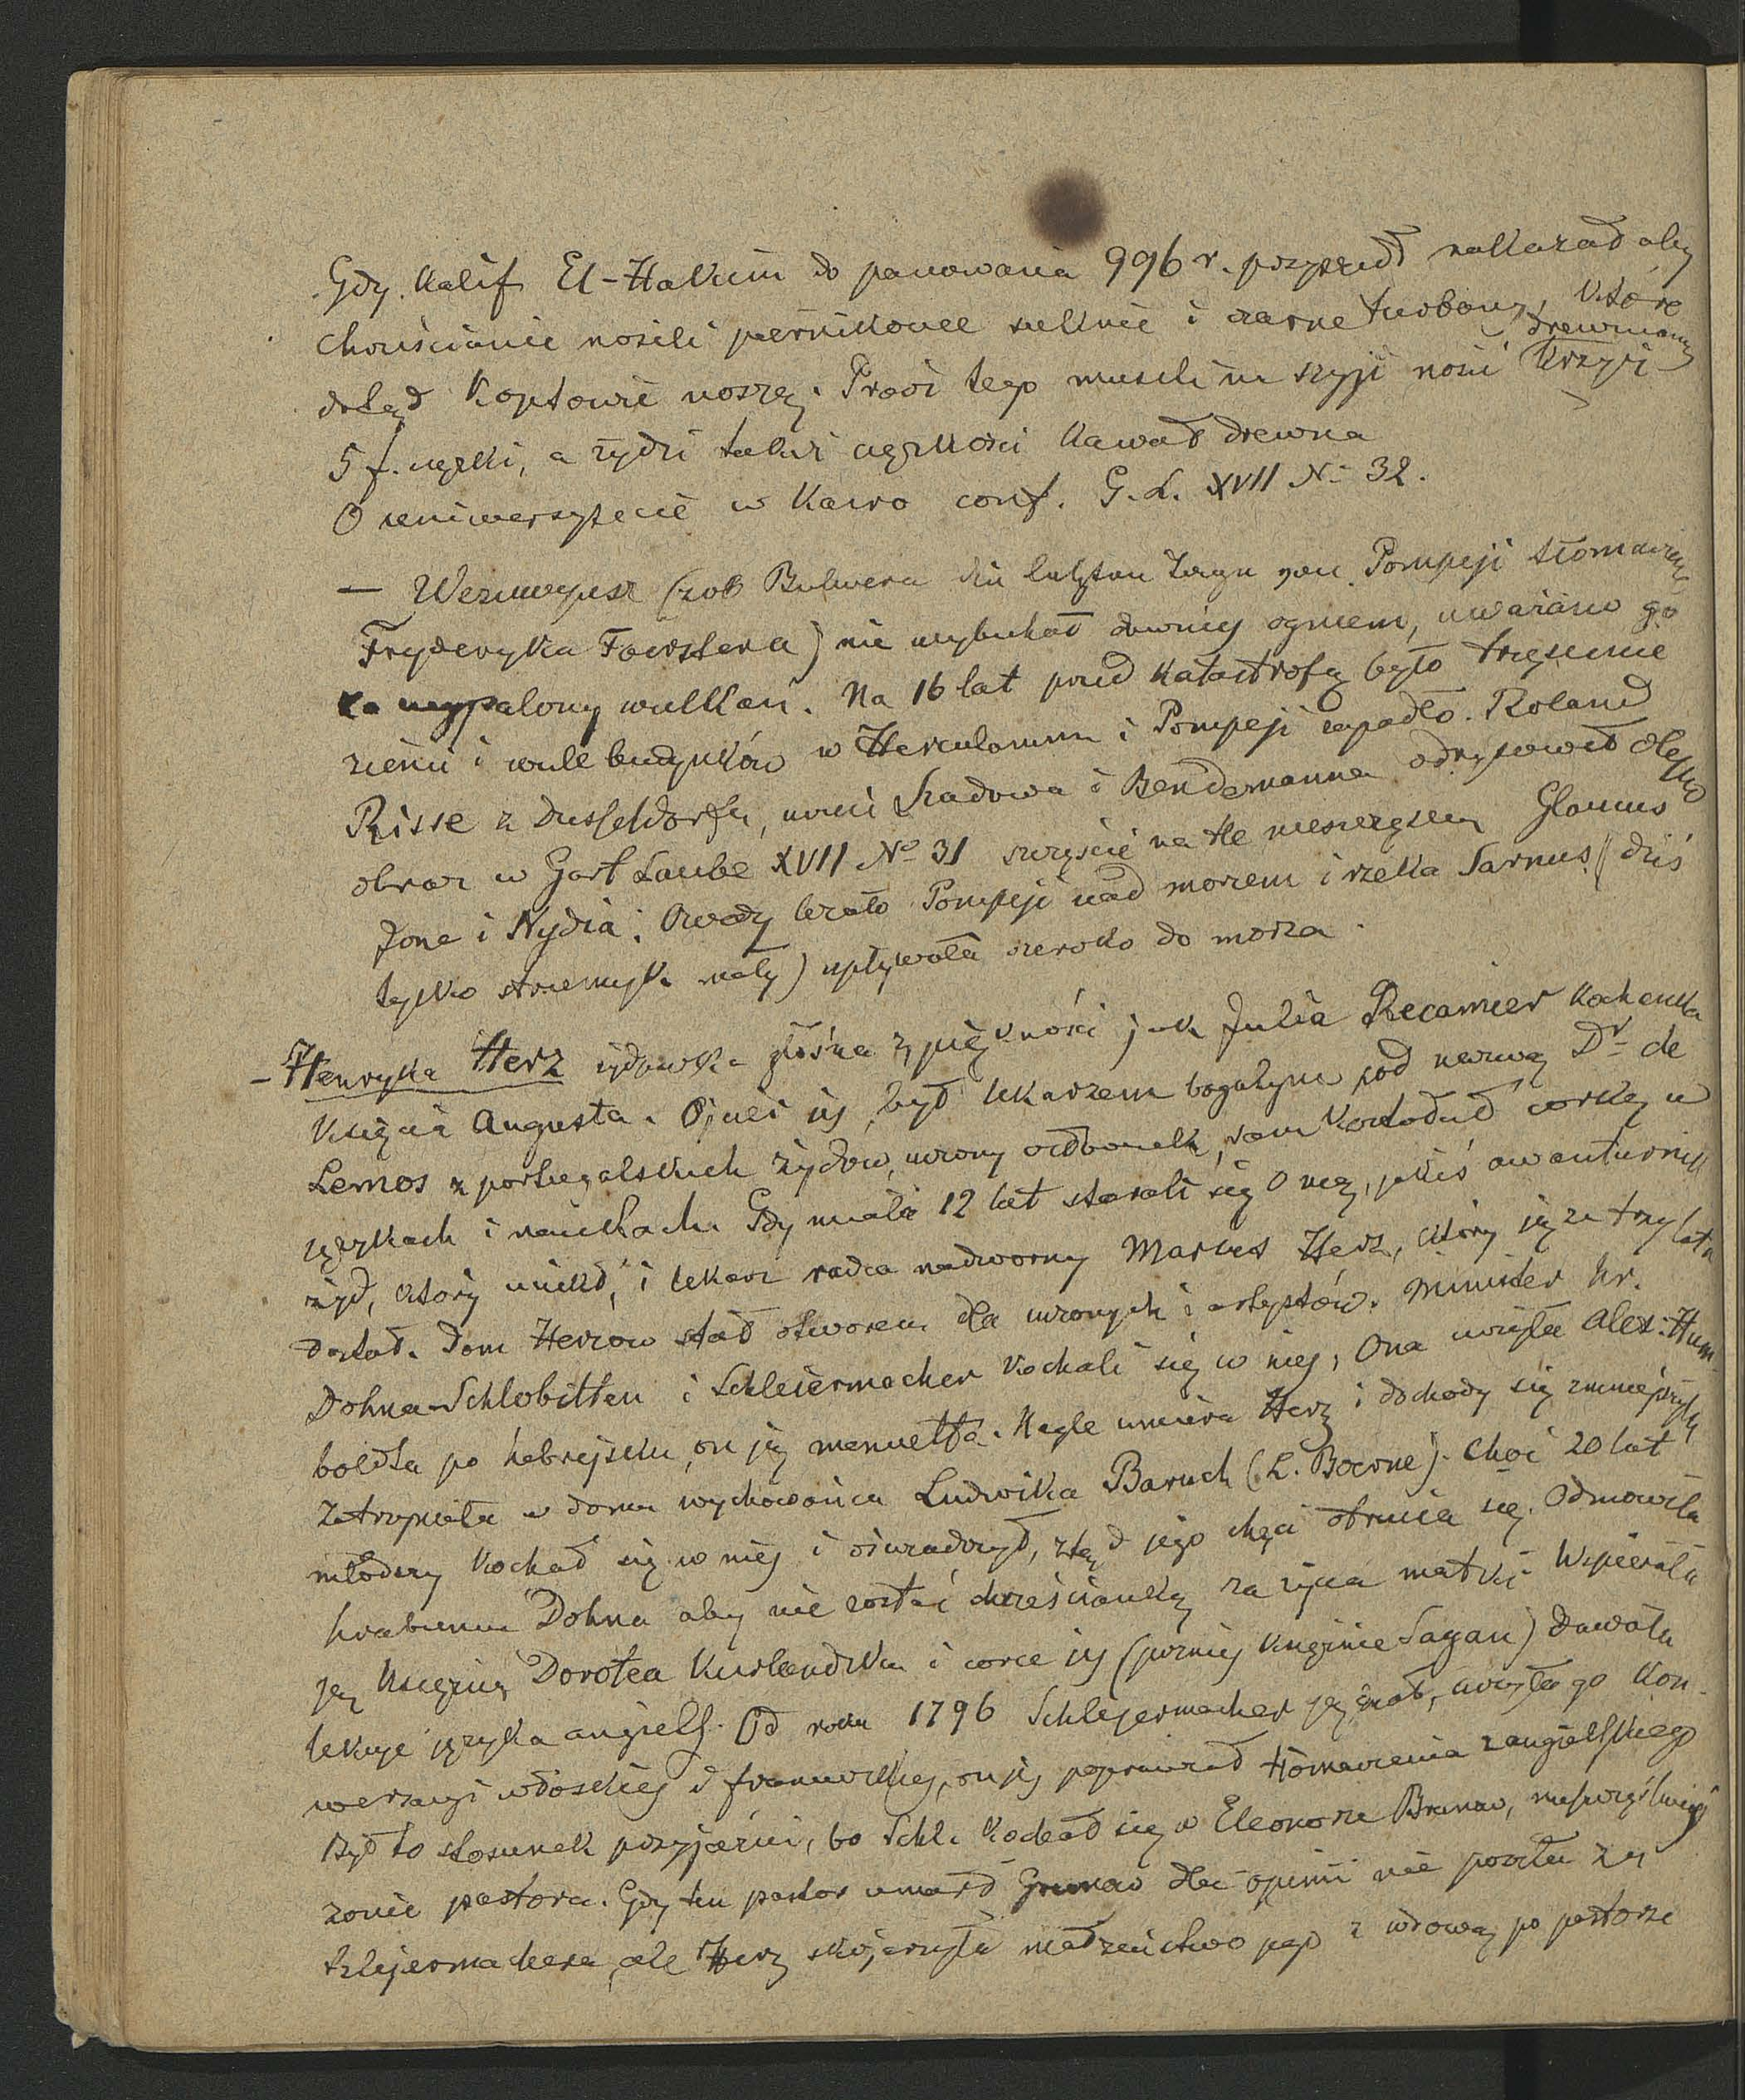 Gdy Kalif El-Hakim do panowania 996 r. przyszedł nakazał aby
chrześcianie nosili piernikowe suknie i czarne turbany, które
dotąd Koptowie noszą. Prócz tego musieli na szyji nosić drewniany krzyż
5 f. ciężki, a żydzi takiej ciężkości kawał drewna
O uniwersytecie w Kairo conf. G. L. XVII No 32.
— Wezuwyusz (zob Bulwera die letzten Tage von Pompeji tłomaczenie
Fryderyka Foerstera) nie wybuchał dawniej ogniem, uważano go
za wypalony wulkan. Na 16 lat przed katastrofą było trzęsienie
ziemi i wiele budynków w Herculanum i Pompeji zapadło. Roland
Risse z Dusseldorfu, uczeń Schadowa i Bendemanna odrysował
obraz w Gart Laube XVII No 31 szczęście na tle nieszczęścia Glaucus
Jone i Nydia. Owczas leżało Pompeji nad morzem i rzeka Sarnus (dziś
tylko strumyk mały) wpływała szeroko do morza.
- Henryka Herz żydówka głośna z piękności jak Julia Recamier kochanka
Księcia Augusta. Ojciec jej był lekarzem bogatym pod nazwą Dr de
Lemos z portugalskich żydów, uczony, sam kształcił córkę w
językach i naukach. Gdy miała 12 lat starali się o nią, jakiś awanturnik
żyd, który uciekł, i lekarz radca nadworny Marcus Herz, który ją za trzy lata
dostał. Dom Herzów stał otworem dla uczonych i artystów. Minister hr.
Dohna-Schlobitten i Schleiermacher kochali się w niej, Ona uczyła Alex. Hum
boldta po hebrejsku, on ją menuetta. Nagle umiera Herz i dochody się zmniejszyły
Zatrzymała w domu wychowańca Ludwika Baruch (L. Boerne). Choć 20 lat
młodszy kochał się w niej i oświadczył, ztąd jego chęć otrucia się. Odmówiła
hrabiemu Dohna aby nie zostać chrześcianką za życia matki. Wspierała
ją księżna Dorotea Kurlandzka i córce jej (później księżnie Sagan) dawała
lekcye języka angielś. Od roku 1796 Schlejermacher ją znał, uczyła go kon-
wersacyi włoskiej i francuzkiej, on jej poprawiał tłomaczenia z angielskiego
Był to stosunek przyjaźni, bo Schl. kochał się w Eleonorze Grunow, nieszczęśliwej
żonie pastora. Gdy ten pastor umarł Grunow dla opinii nie poszła za
Schlejermachera, ale Herz skojarzyła małżeństwo jego z wdową po pastorze